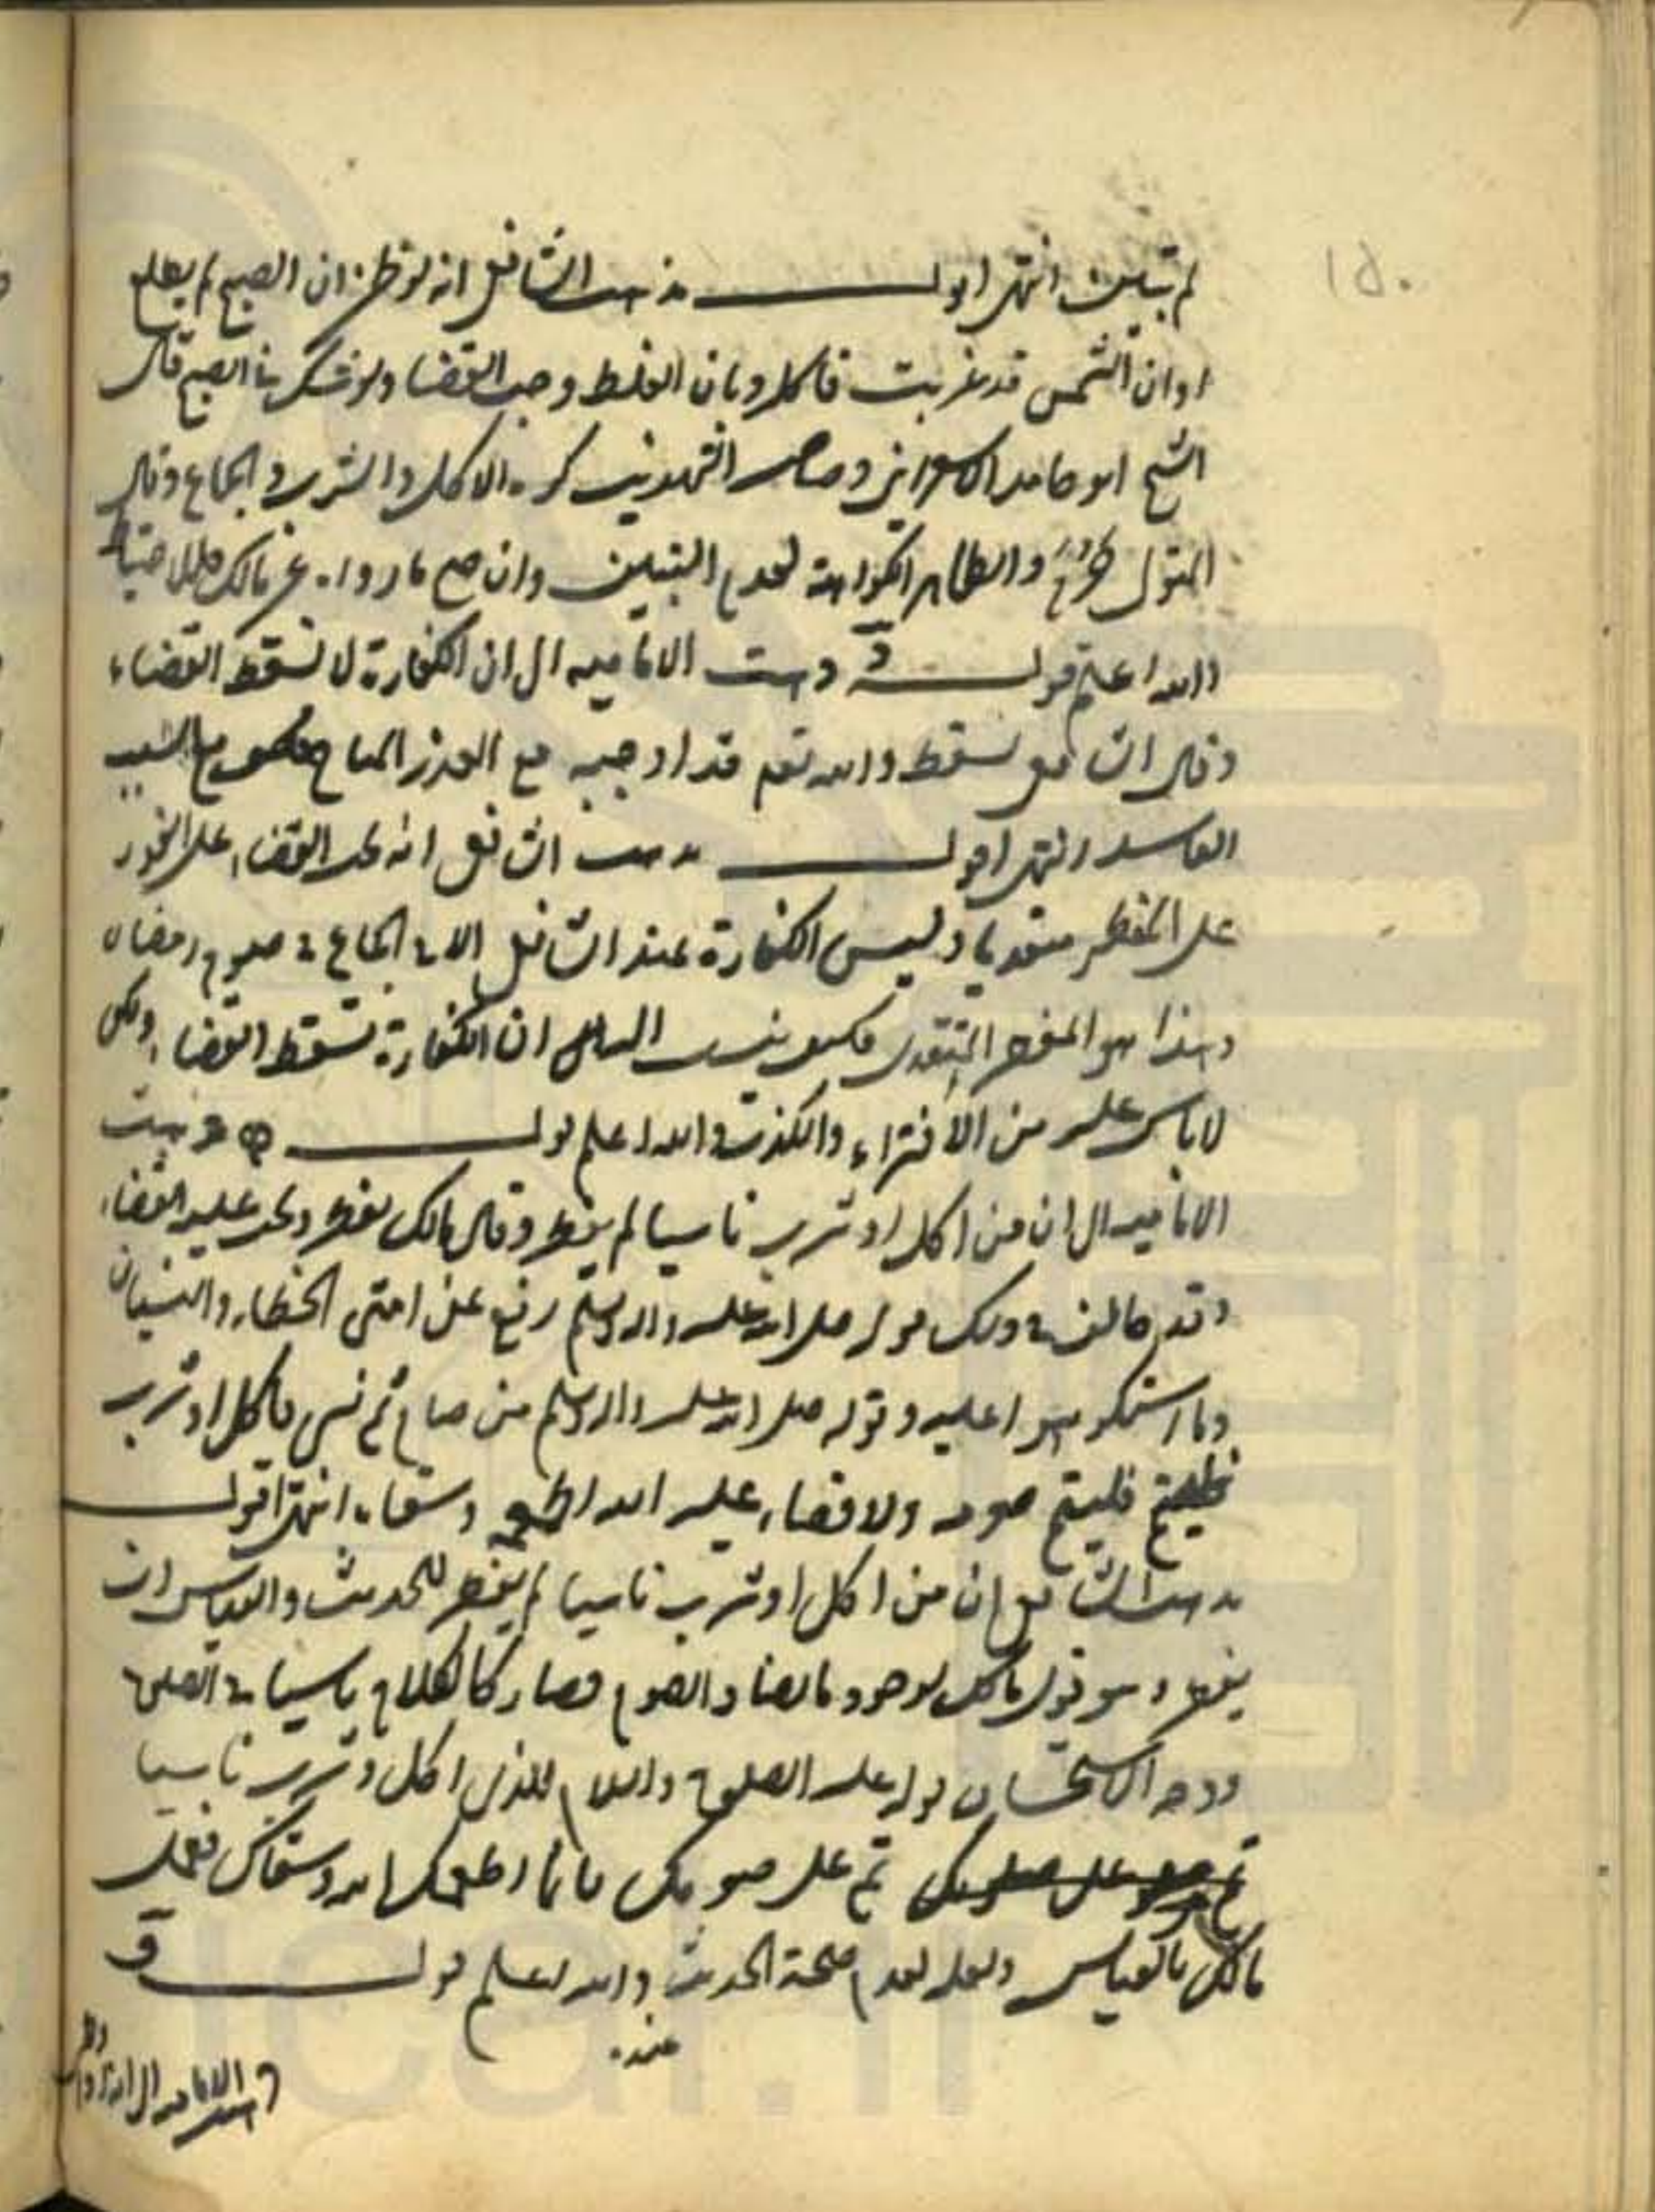 ١٥٠
لم تبين انتهى اقول مذهب الشافعى انه لو ظن ان الصبح لم يطلع
او ان الشمس قد غربت فاكل وبان الغلط وجب القضا ولو شك فى الصبح قال
الشيخ ابو حامد الاسفراينى وصاحب التهذيب كره الاكل والشرب والجماع وقال
المتولى والظاهر الكراهة لعدم التبين وان صح ما رواه عن مالك فللاحتياط
والله اعلم قوله د ذهبت الاماميه الى ان الكفارة لا تسقط القضاء
وقال الشافعى تسقط والله تعم قد اوجبه مع العذر المباح فكيف مع السبب
الفاسد انتهى اقول مذهب الشافعى انه يجب القضاء على الفور
على المفطر متعديا وليس الكفارة عند الشافعى الا فى الجماع فى صوم رمضان
وهذا هو المفطر المتعدى فكيف ينسب اليه ان الكفارة تسقط القضاء ولكن
لا باس عليه من الافتراء والكذب والله اعلم قوله ه ذهبت
الاماميه الى ان من اكل او شرب ناسيا لم يفطر وقال مالك يفطر ويجب عليه القضاء
وقد خالف فى ذلك قوله صلى الله عليه واله وسلم رفع عن امتى الخطاء والنسيان
وما استكرهوا عليه وقوله صلى الله عليه واله وسلم من صام ثم نسى فاكل او شرب
فليتم صومه ولا قضاء عليه الله اطعمه وسقاه انتهى اقول
مذهب الشافعى ان من اكل او شرب ناسيا لم يفطر للحديث والقياس ان
يفطر وهو قول مالك لوجود ما يضاد الصوم فصار كالكلام ناسيا فى الصلوة
ووجه الاستحسان قوله عليه الصلوة والسلام للذى اكل وشرب ناسيا
تم على صومك فانما اطعمك الله وسقاك فعمل
مالك بالقياس ولعله لعدم صحة الحديث والله اعلم قوله و
عنده
ذهبت الاماميه الى انه